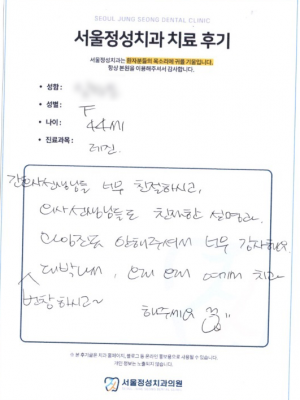 SEOUL JUNG SEONG DENTAL CLINIC
서울정성치과 치료 후기
서울정성치과는 환자분들의 목소리에 귀를 기울입니다.
항상 본원을 이용해주셔서 감사합니다.
• 성함 :
• 성별 : F
• 나이 : 44세
• 진료과목 : 레진
간호사선생님들 너무 친절하시고,
의사선생님들도 친절한 설명과
과잉진료 안해주셔서 너무 감사해요
대박나세요, 오래 오래 여기서 치과
번창하시고~ 해주세요
※ 본 후기글은 치과 홈페이지, 블로그 등 온라인 홍보용으로 사용될 수 있습니다.
개인 정보는 노출되지 않습니다.
서울정성치과의원